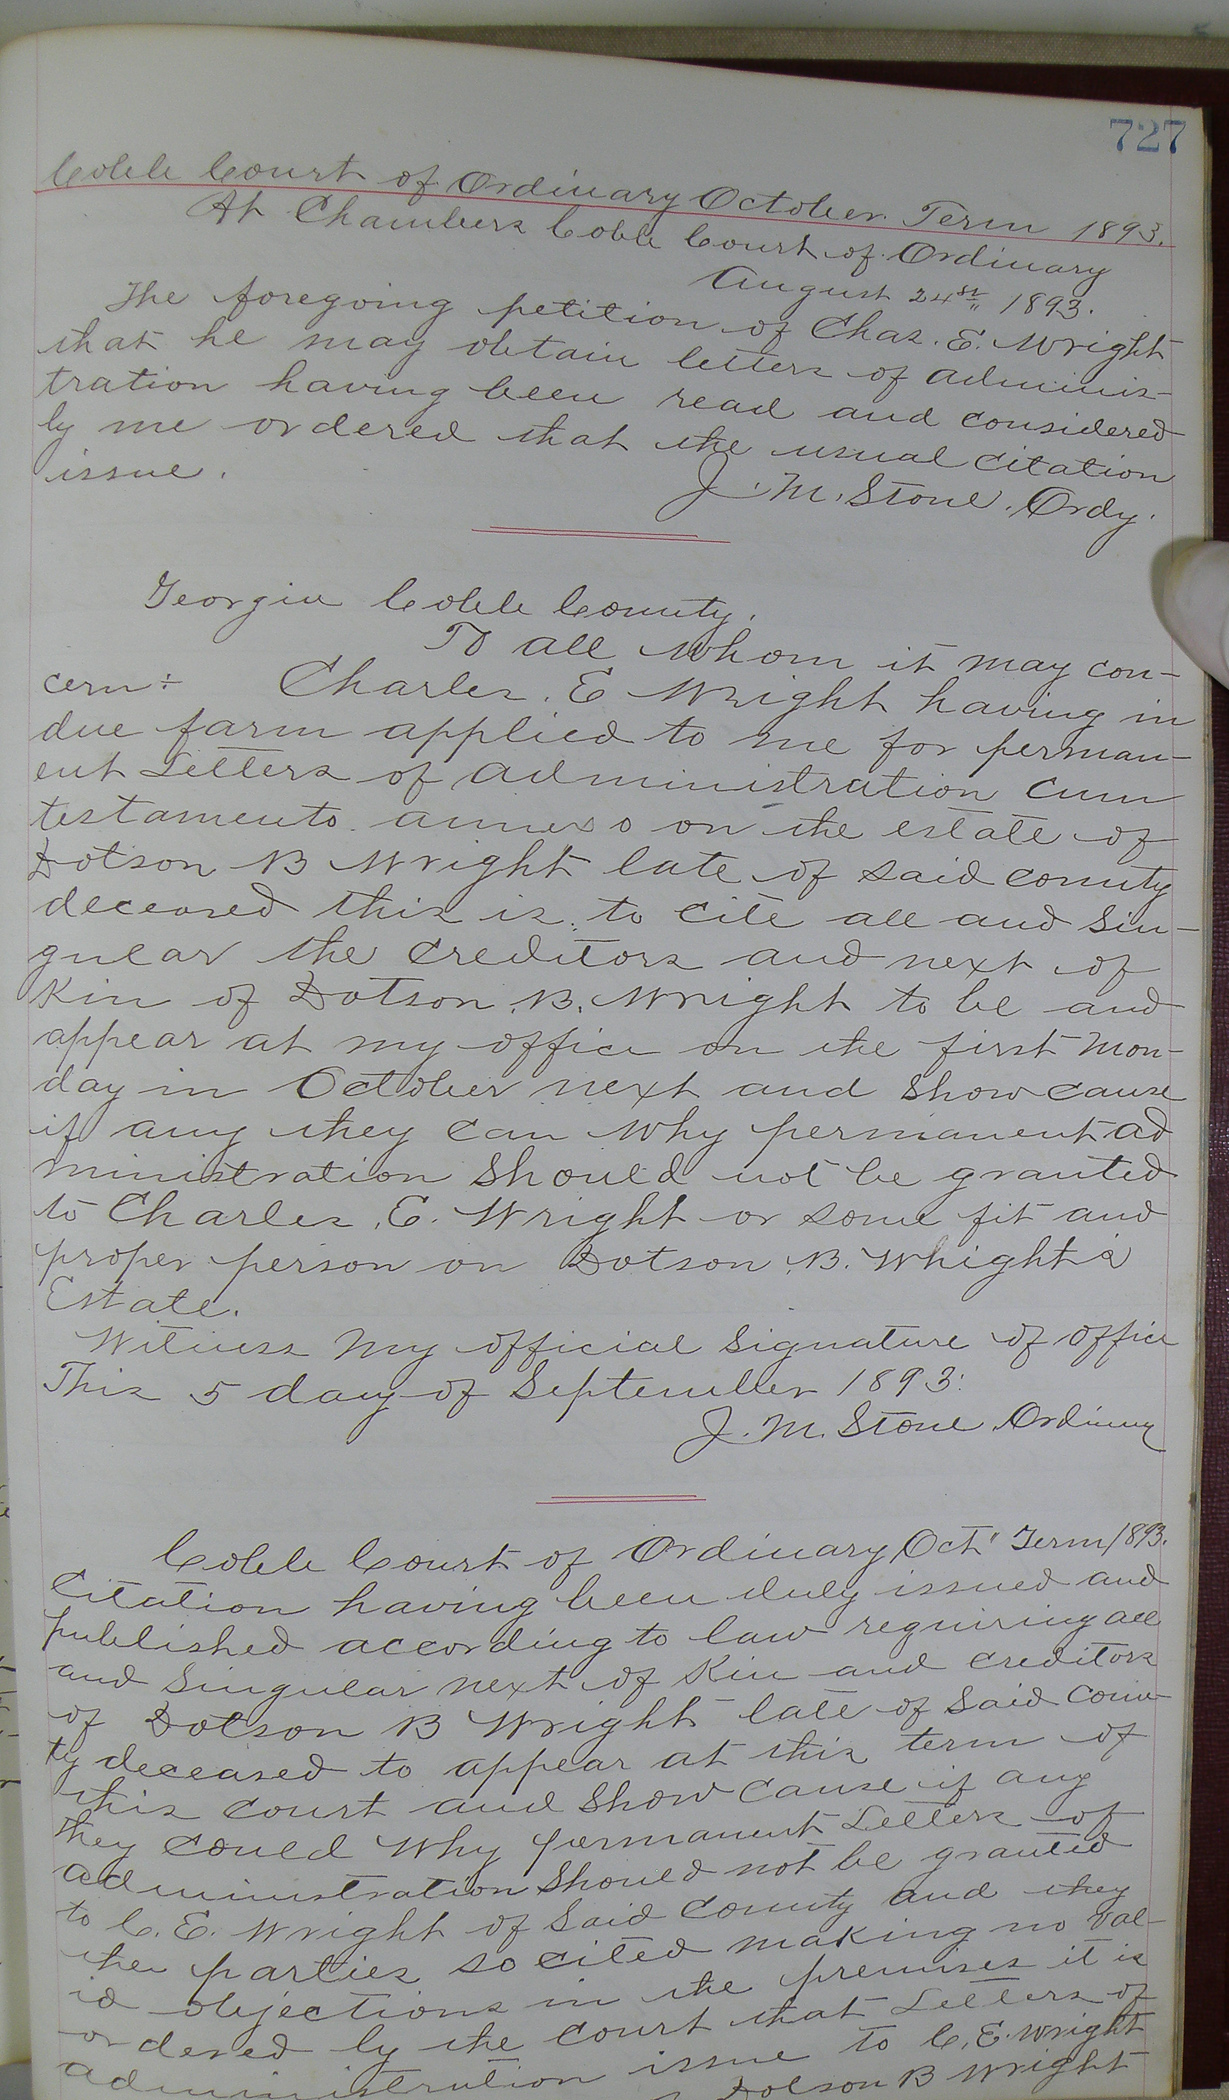 727
Cobb Court of Ordinary October Term 1893.
At Chambers Cobb Court of Ordinary
August 24st 1893.
The foregoing petition of Chas. E. Wright
that he may obtain letters of adminis-
tration having been read and considered
by me ordered that the usual citation
issue.
J. M. Stone. Ordy.
Georgia Cobb County.
To all whom it may con-
cern: Charles. E Wright having in
due farm applied to me for perman-
ent Letters of administration cum
testamento annexo on the estate of
Dotson B Wright late of said county
deceased this is to cite all and Sin-
gular the creditors and next of
Kin of Dotson. B. Wright to be and
appear at my office on the first Mon-
day in October next and show cause
if any they can why permanent ad
ministration should not be granted
to Charles. E. Wright or some fit and
proper person on Dotson. B. Whight's
Estate.
Witness my official signature of office
This 5 day of September 1893.
J. M. Stone Ordinary
Cobb Court of Ordinary Oct" Term 1893.
Citation having been duly issued and
published according to law requiring all
and Singular next of Kin and creditors
of Dotson B Wright late of said Coun-
ty deceased to appear at this term of
this court and show cause if any
they could why permanent Letters of
administration should not be granted
to C. E. Wright of said County and they
the parties so cited making no val-
id objections in the premises it is
ordered by the court that Letters of
administration issue to C. E. Wright
Dotson B Wright